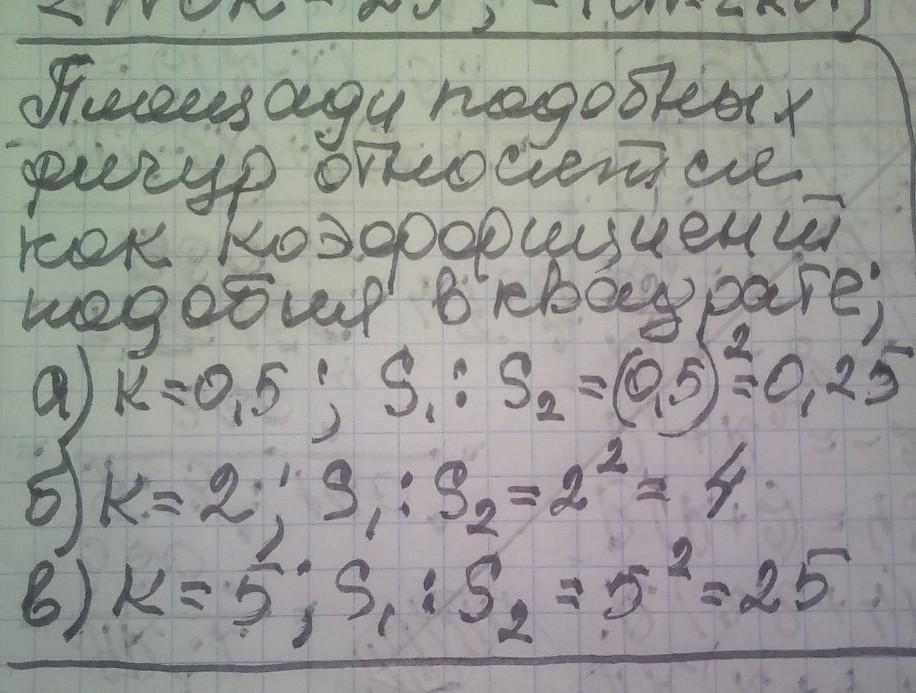 Площади подобных
фигур относится
как коэффициент
подобия в квадрате;
а) k=0,5; S₁ : S₂ =(0,5)²=0,25
б) k=2; S₁ : S₂ = 2² = 4
в) k=5; S₁ : S₂ = 5² = 25